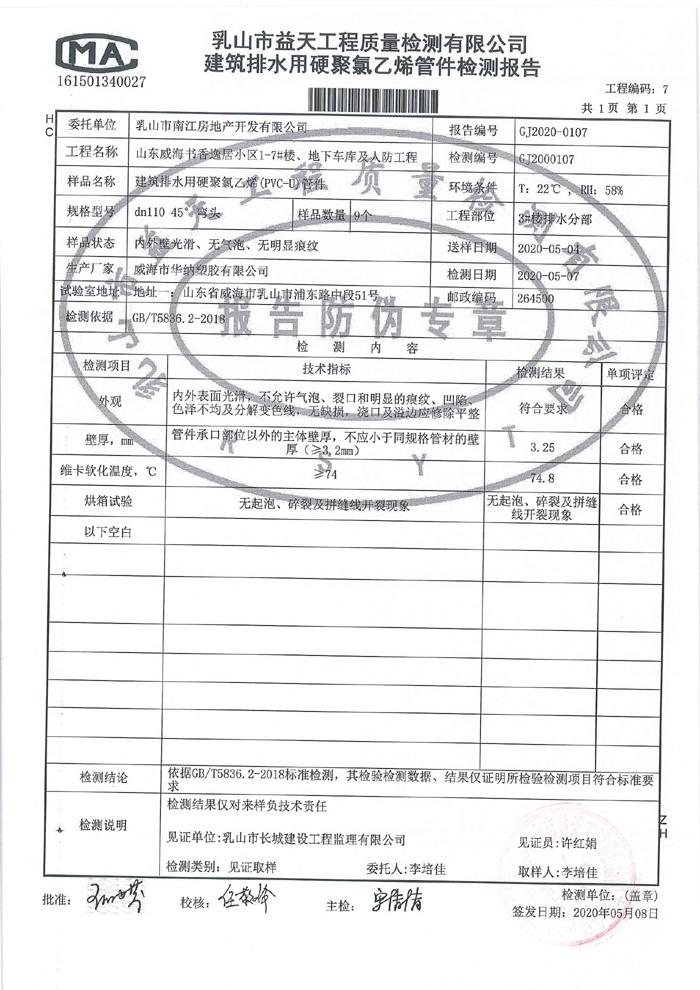 MA
161501340027
乳山市益天工程质量检测有限公司
建筑排水用硬聚氯乙烯管件检测报告
工程编码：7
共 1 页 第 1 页
HC
委托单位 乳山市南江房地产开发有限公司 报告编号 GJ2020-0107
工程名称 山东威海书香逸居小区1-7#楼、地下车库及人防工程 检测编号 GJ2000107
样品名称 建筑排水用硬聚氯乙烯(PVC-U)管件 环境条件 T: 22℃ , RH: 58%
规格型号 dn110 45°弯头 样品数量 9个 工程部位 3#楼排水分部
样品状态 内外壁光滑、无气泡、无明显痕纹 送样日期 2020-05-04
生产厂家 威海市华纳塑胶有限公司 检测日期 2020-05-07
试验室地址 地址一：山东省威海市乳山市浦东路中段51号 邮政编码 264500
检测依据 GB/T5836.2-2018
检 测 内 容
检测项目 技术指标 检测结果 单项评定
外观 内外表面光滑，不允许气泡、裂口和明显的痕纹、凹陷、
色泽不均及分解变色线，无缺损，浇口及溢边应修除平整 符合要求 合格
壁厚，mm 管件承口部位以外的主体壁厚，不应小于同规格管材的壁
厚（≥3.2mm） 3.25 合格
维卡软化温度，℃ ≥74 74.8 合格
烘箱试验 无起泡、碎裂及拼缝线开裂现象 无起泡、碎裂及拼缝
线开裂现象 合格
以下空白
检测结论 依据GB/T5836.2-2018标准检测，其检验检测数据、结果仅证明所检验检测项目符合标准要
求
检测说明 检测结果仅对来样负技术责任
见证单位:乳山市长城建设工程监理有限公司 见证员:许红娟
检测类别: 见证取样 委托人:李培佳 取样人:李培佳
ZH
批准： 校核： 主检：
检测单位：(盖章)
签发日期：2020年05月08日
乳山市益天工程质量检测有限公司
报告防伪专章
RSYT